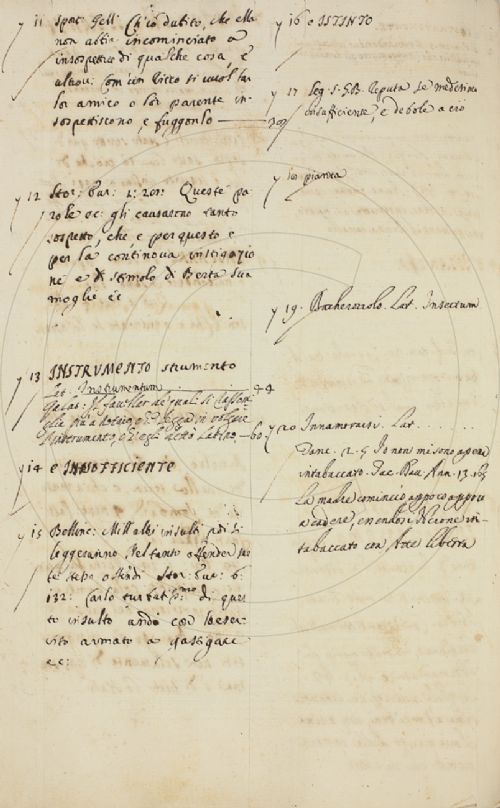 y 11 sport: Gell: Ch'io dubito, che ella
non abbia incominciato a
insospettire di qualche cosa, e
altrove: Com'un Ricco si vuol far
lor amico o lor parente in-
sospettiscono, e fuggonlo
y 12 Stor: Eur: 1: 201: Queste pa
role ec: gli causarono tanto
sospetto, che e per questo e
per la continova instigazio
ne e stimolo di Berta sua
moglie, ec
y 13 INSTRUMENTO strumento
Lat. Instrumentum
y 14 e INSOFFICIENTE
y 15 Bellinc: Mill'altri insulti poi si
leggeranno Nel santo offender
le stesso offendi Stor: Eur: 6:
132: Carlo turbatiss.mo di ques
to insulto andò con l'eser-
cito armato a gastigare
ec:
y 16 e ISTINTO
y 17 Seg: S: G.B. Reputa se medesimo
insufficiente, e debole a ciò
y 18 pianta
y 19. Bacherozzolo. Lat. Insectum
y 20 Innamorarsi. Lat. . . . . .
Dant. 2. 5 Io non mi sono ancora
intabaccato. Dav. Ann. 13.
La madre cominciò appoco appoco
a cadere, essendosi Nerone in-
tabaccato con Atte liberta